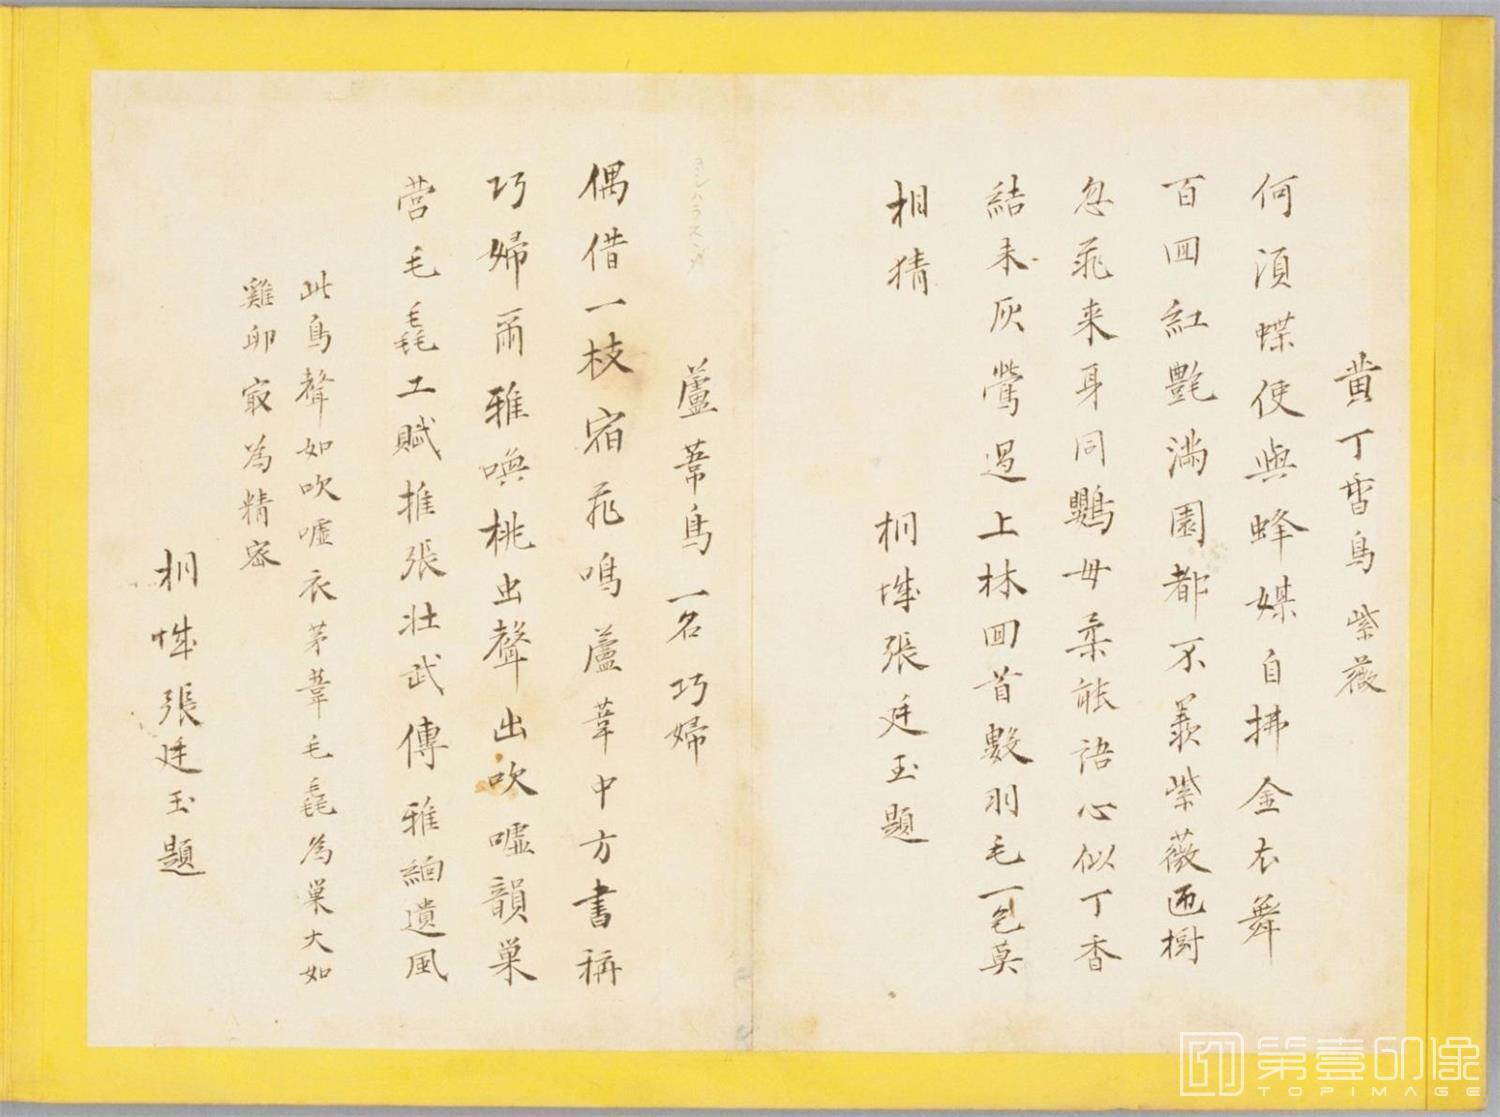 黄丁香鳥 紫薇
何須蝶使與蜂媒自拂金衣舞
百囬紅艷滿園都不羨紫薇迊樹
忽飛来身同鸚母柔能語心似丁香
結未灰鶯過上林囬首數羽毛一色莫
相猜
桐城張廷玉題
蘆葦鳥一名巧婦
偶借一枝宿飛鳴蘆葦中方書稱
巧婦爾雅喚桃虫聲出吹噓韻巢
营毛毳工賦推張壮武傳雅緬遺風
此鳥聲如吹噓衣茅葦毛毳為巢大如
雞卵寂為精密
桐城張廷玉題
ヨシハラスゝメ
第壹印像
TOPIMAGE